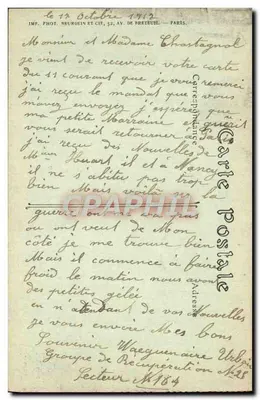 le 17 Octobre 1917
IMP. PHOT. NEURDEIN ET Cie, 52, AV. DE BRETEUIL. — PARIS.
Monsieur et Madame Chastagnol
je vient de recevoir votre carte
du 11 courant que je vous remerci
j'ai reçu le mandat que vous
mavez envoyez j'espères que
ma petite Marraine guérit
vous serait retourner
j'ai reçu des Nouvelles de
Huart il et a Nancy
il ne s'abitue pas trop
bien Mais voilà la
guerre on ne vas pas
ou ont veut de Mon
côté je me trouve bien
Mais il commence à faire
froid le matin nous avons
des petites gelée
en n'atendent de vos Nouvelles
je vous envoire Mes bons
Souvenir Wacquenaire
Groupe de Récupération No 28
Secteur No 184
Carte Postale
Correspondance
Adresse